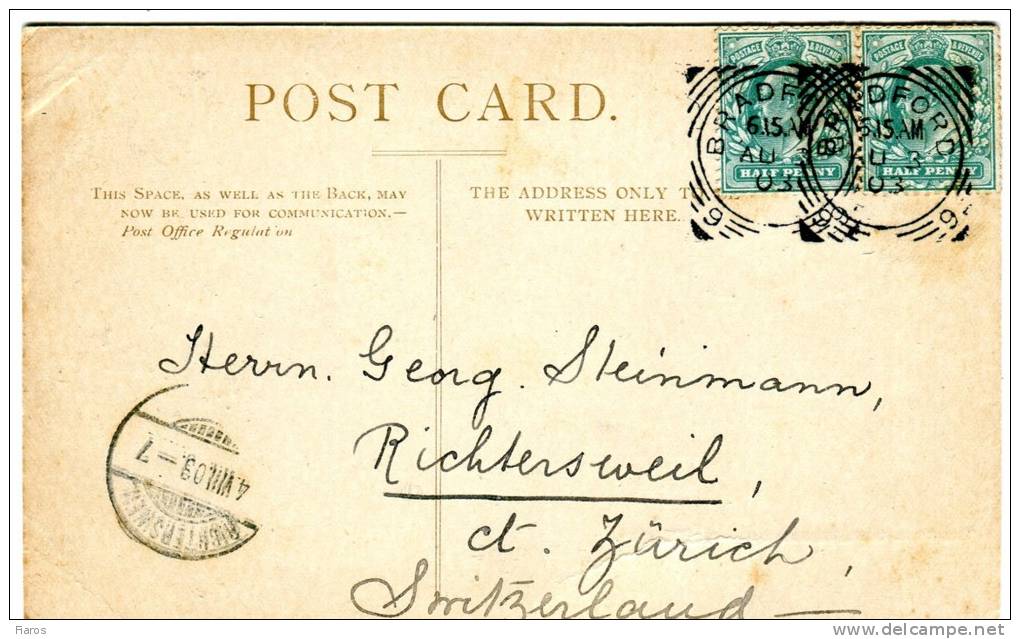 POST CARD.
THIS SPACE, AS WELL AS THE BACK, MAY
NOW BE USED FOR COMMUNICATION.—
Post Office Regulation
THE ADDRESS ONLY TO
WRITTEN HERE.
POSTAGE & REVENUE
HALF PENNY
POSTAGE & REVENUE
HALF PENNY
BRADFORD
6.15.AM
AU 3
03
9
BRADFORD
6.15.AM
AU 3
03
9
Herrn. Georg. Steinmann,
Richtersweil,
ct. Zürich,
Switzerland —
4.VIII.03.–7
RICHTERSWEIL
© Raros
delcampe.net